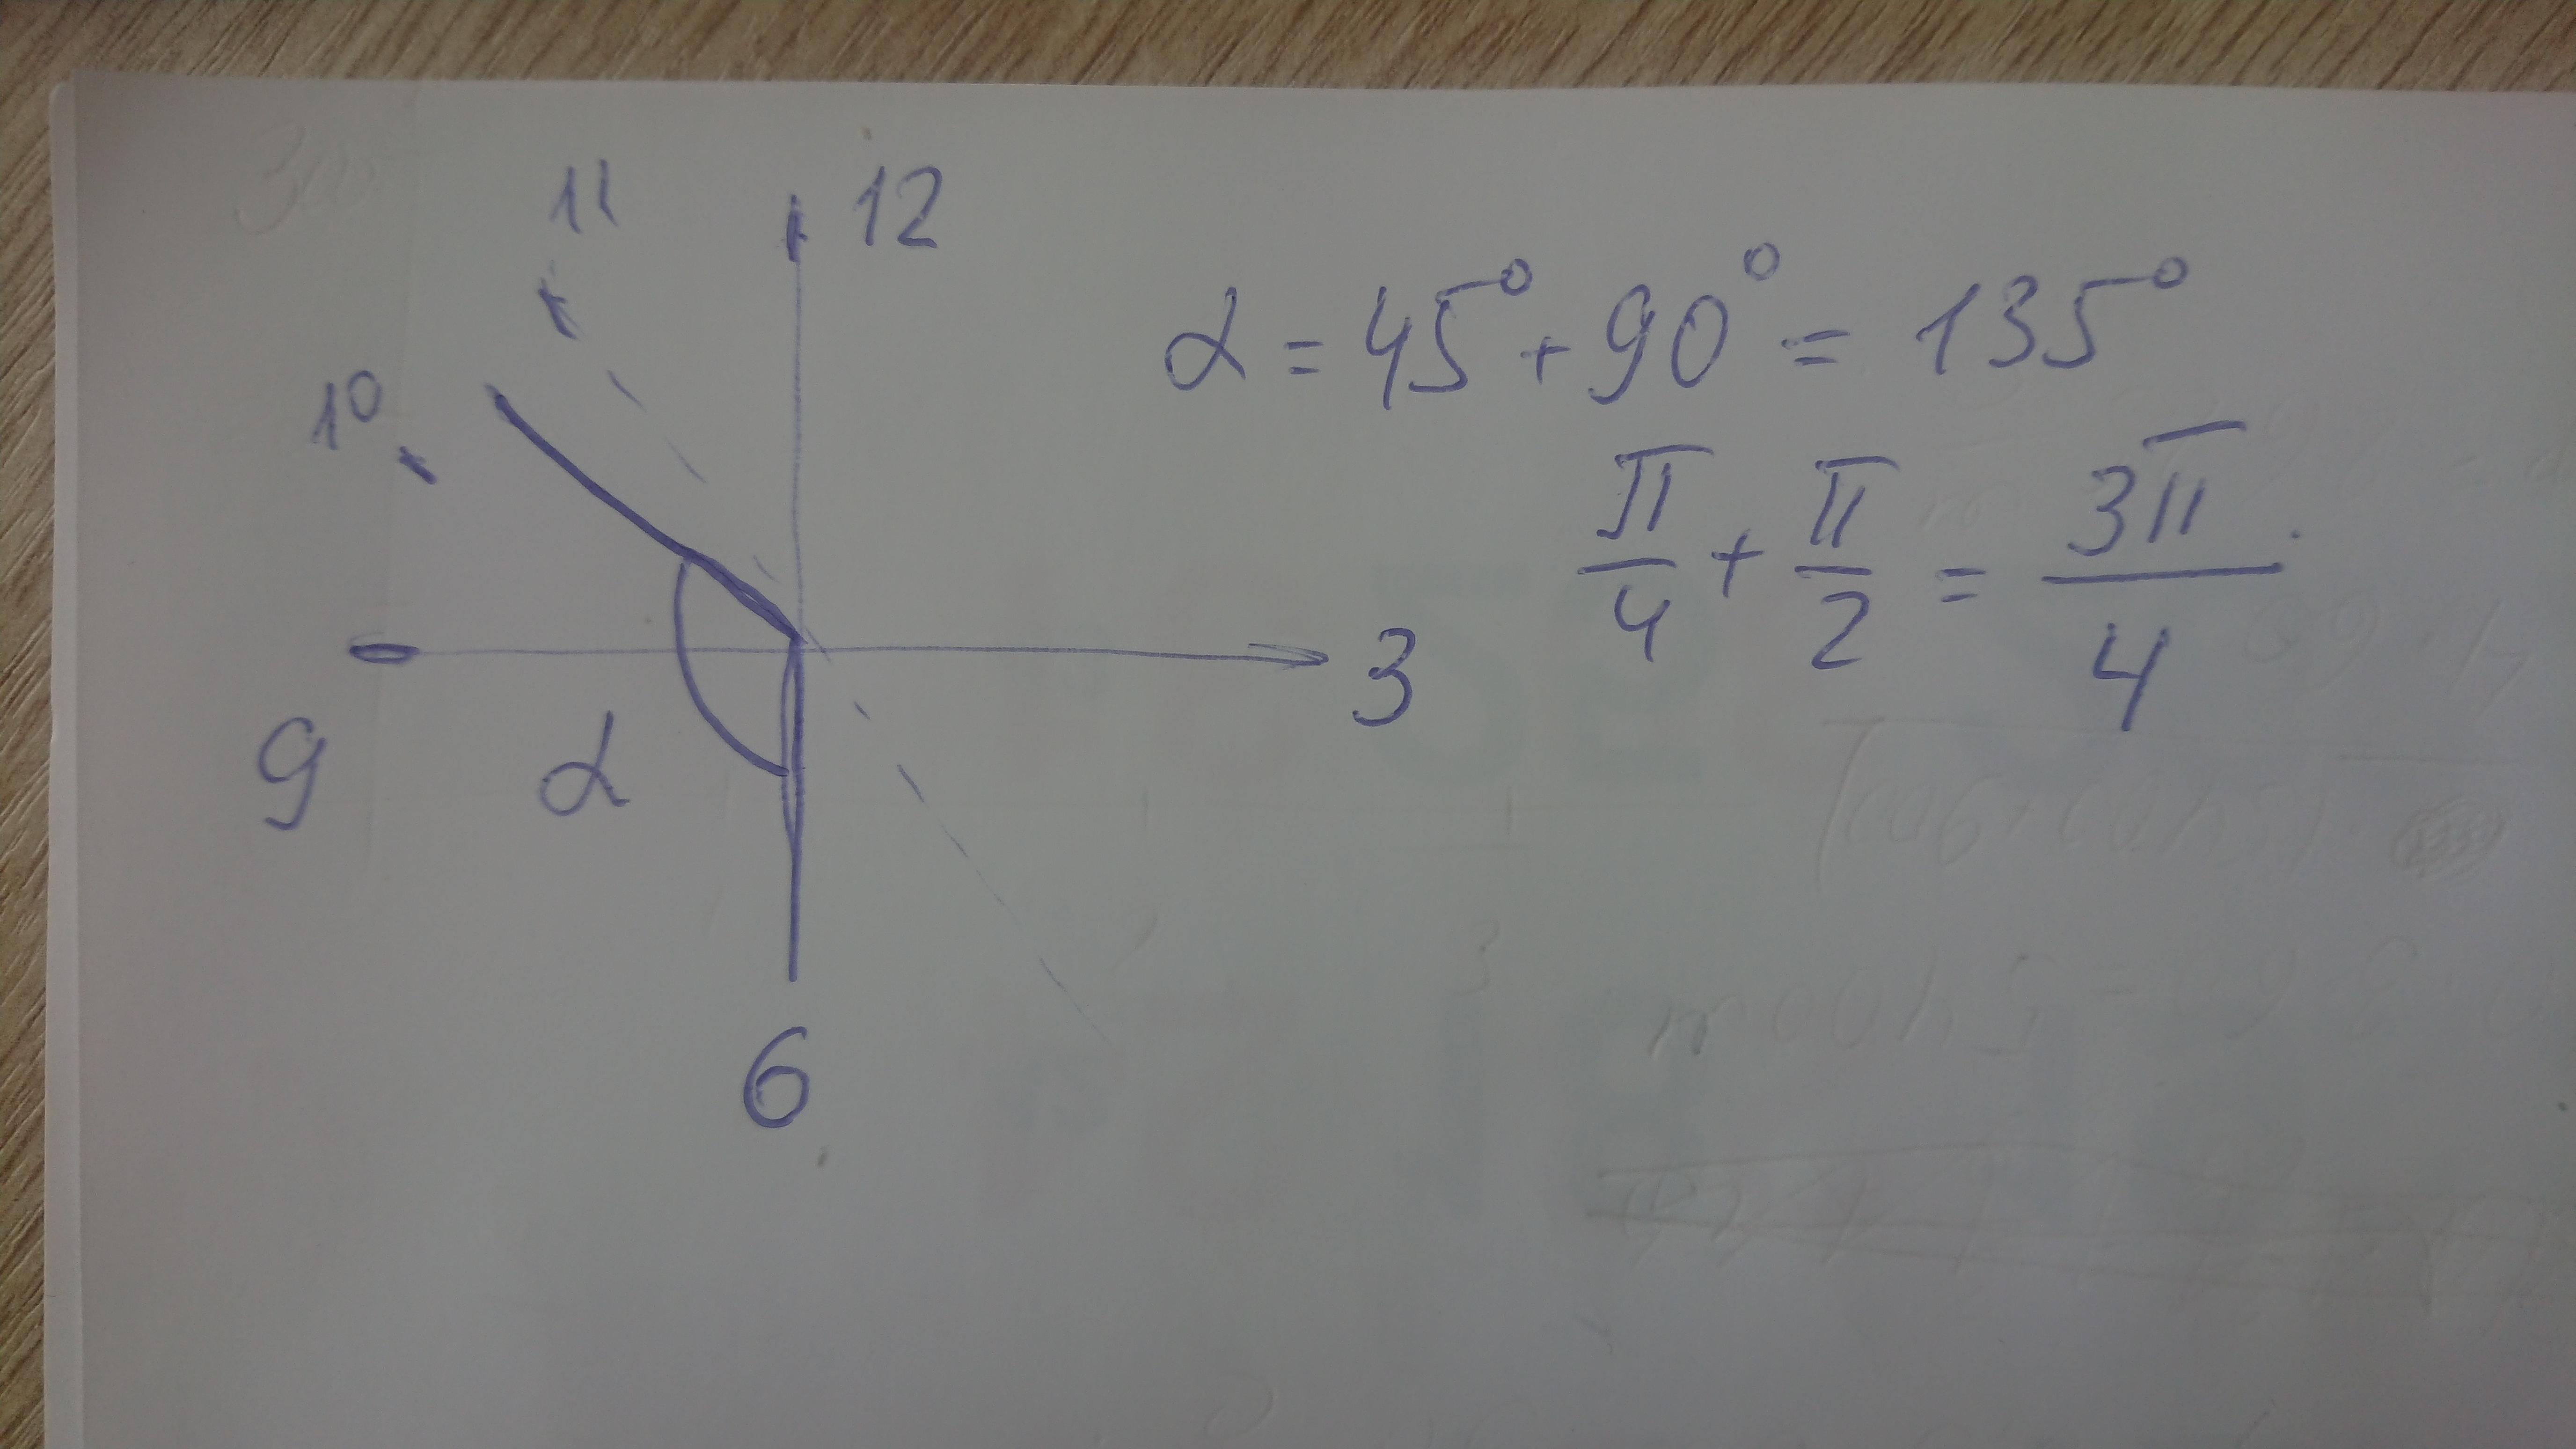 11 12
10
9 3
α
6
α = 45° + 90° = 135°
π/4 + π/2 = 3π/4.